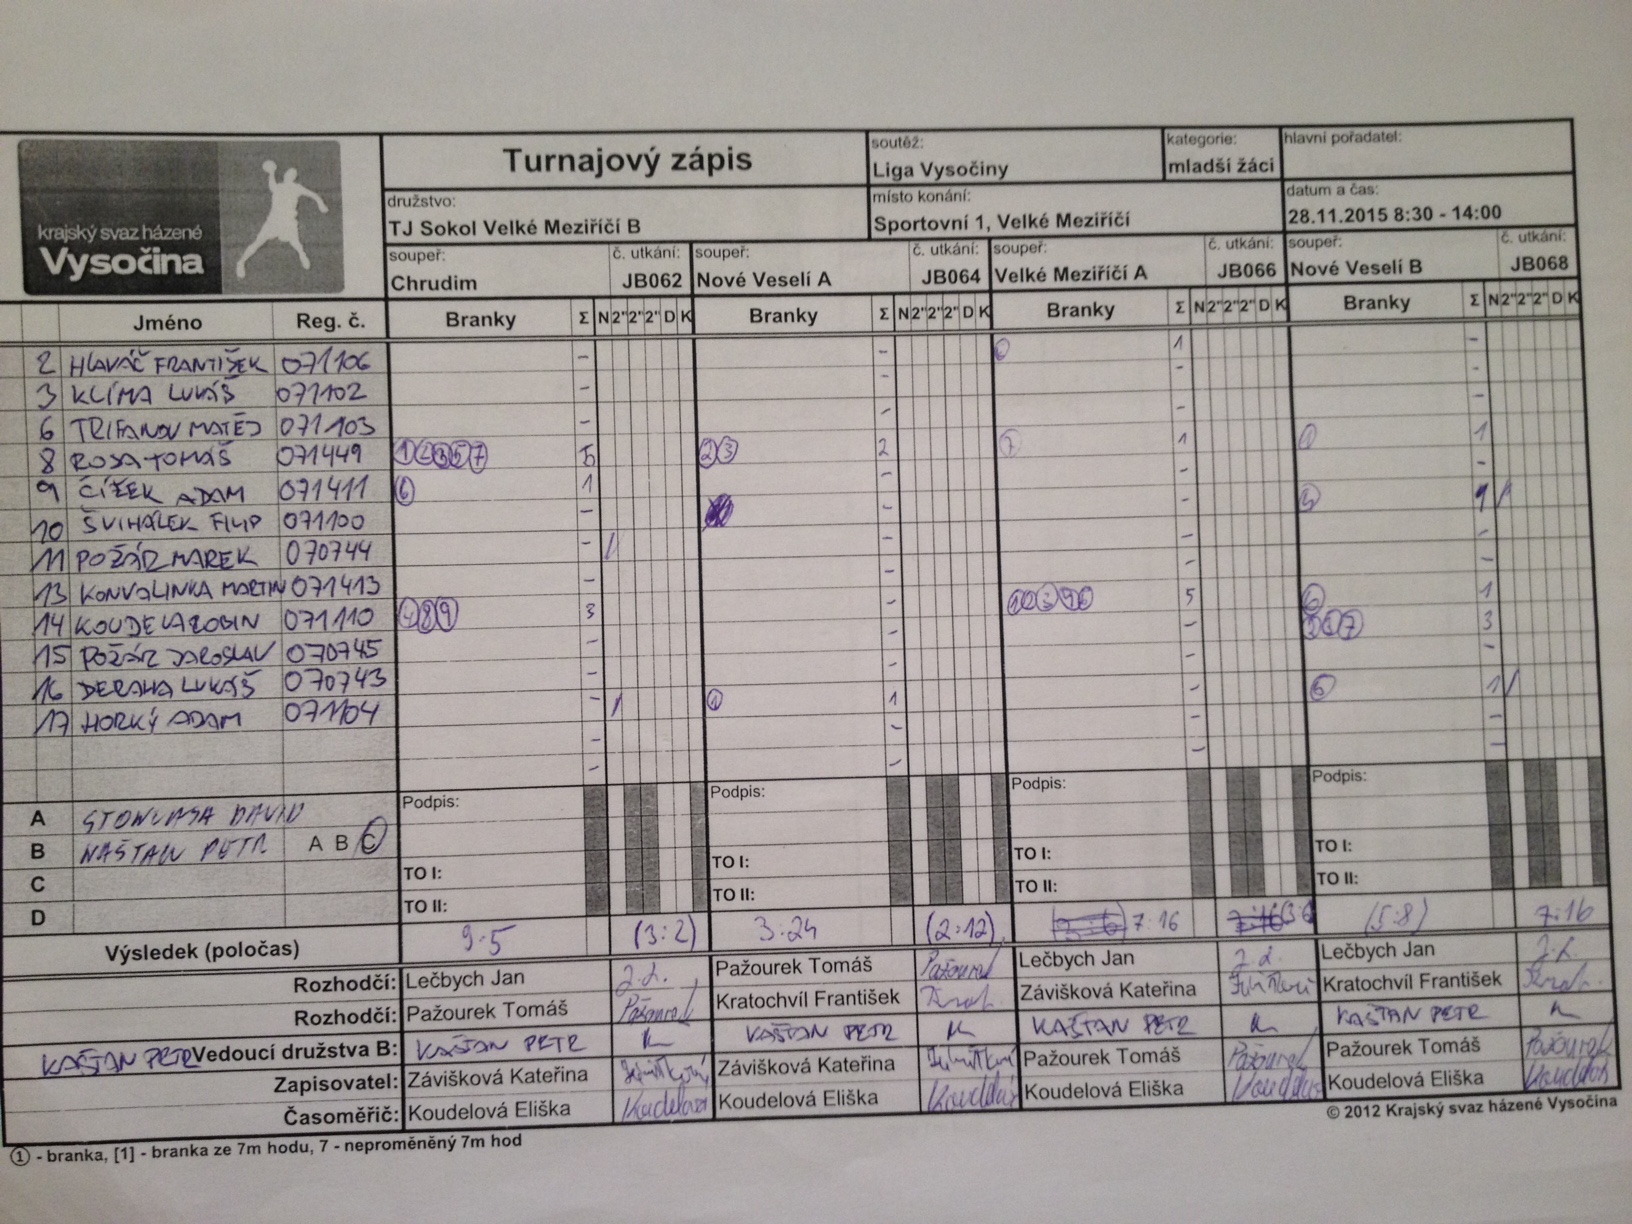 Turnajový zápis
soutěž:
Liga Vysočiny
kategorie:
mladší žáci
hlavní pořadatel:
krajský svaz házené
Vysočina
družstvo:
TJ Sokol Velké Meziříčí B
místo konání:
Sportovní 1, Velké Meziříčí
datum a čas:
28.11.2015 8:30 - 14:00
soupeř: č. utkání: soupeř: č. utkání: soupeř: č. utkání: soupeř: č. utkání:
Chrudim JB062 Nové Veselí A JB064 Velké Meziříčí A JB066 Nové Veselí B JB068
Jméno Reg. č. Branky Σ N 2" 2" 2" D K Branky Σ N 2" 2" 2" D K Branky Σ N 2" 2" 2" D K Branky Σ N 2" 2" 2" D K
2 HLAVÁČ FRANTIŠEK 071106 - - 1 -
3 KLÍMA LUKÁŠ 071102 - - - -
6 TRIFANOV MATĚJ 071103 - - - -
8 ROSA TOMÁŠ 071449 5 2 3 2 7 1 1 1
9 ČÍŽEK ADAM 071411 6 1 - - -
10 ŠVIHÁLEK FILIP 071100 - - - 1 /
11 POŽÁR MAREK 070744 - / - - -
13 KONVALINKA MARTIN 071413 - - - -
14 KOUDELA ROBIN 071110 4 8 9 3 - 5 1
15 POŽÁR JAROSLAV 070745 - - - 3
16 DERAHA LUKÁŠ 070743 - - - -
17 HORKÝ ADAM 071104 - / 1 1 - 1 /
A STONVASA DAVID Podpis: Podpis: Podpis: Podpis:
B KAŠTAN PETR A B C
C TO I: TO I: TO I: TO I:
D TO II: TO II: TO II: TO II:
Výsledek (poločas) 9:5 (3:2) 3:24 (2:12) 7:16 (5:8) 7:16
Rozhodčí: Lečbych Jan Pažourek Tomáš Pažourek Lečbych Jan Lečbych Jan
Rozhodčí: Pažourek Tomáš Pažourek Kratochvíl František Závišková Kateřina Kratochvíl František
KAŠTAN PETR Vedoucí družstva B: KAŠTAN PETR KAŠTAN PETR KAŠTAN PETR KAŠTAN PETR
Zapisovatel: Závišková Kateřina Závišková Kateřina Pažourek Tomáš Pažourek Pažourek Tomáš Pažourek
Časoměřič: Koudelová Eliška Koudelová Koudelová Eliška Koudelová Koudelová Eliška Koudelová Koudelová Eliška Koudelová
① - branka, [1] - branka ze 7m hodu, 7 - neproměněný 7m hod
© 2012 Krajský svaz házené Vysočina